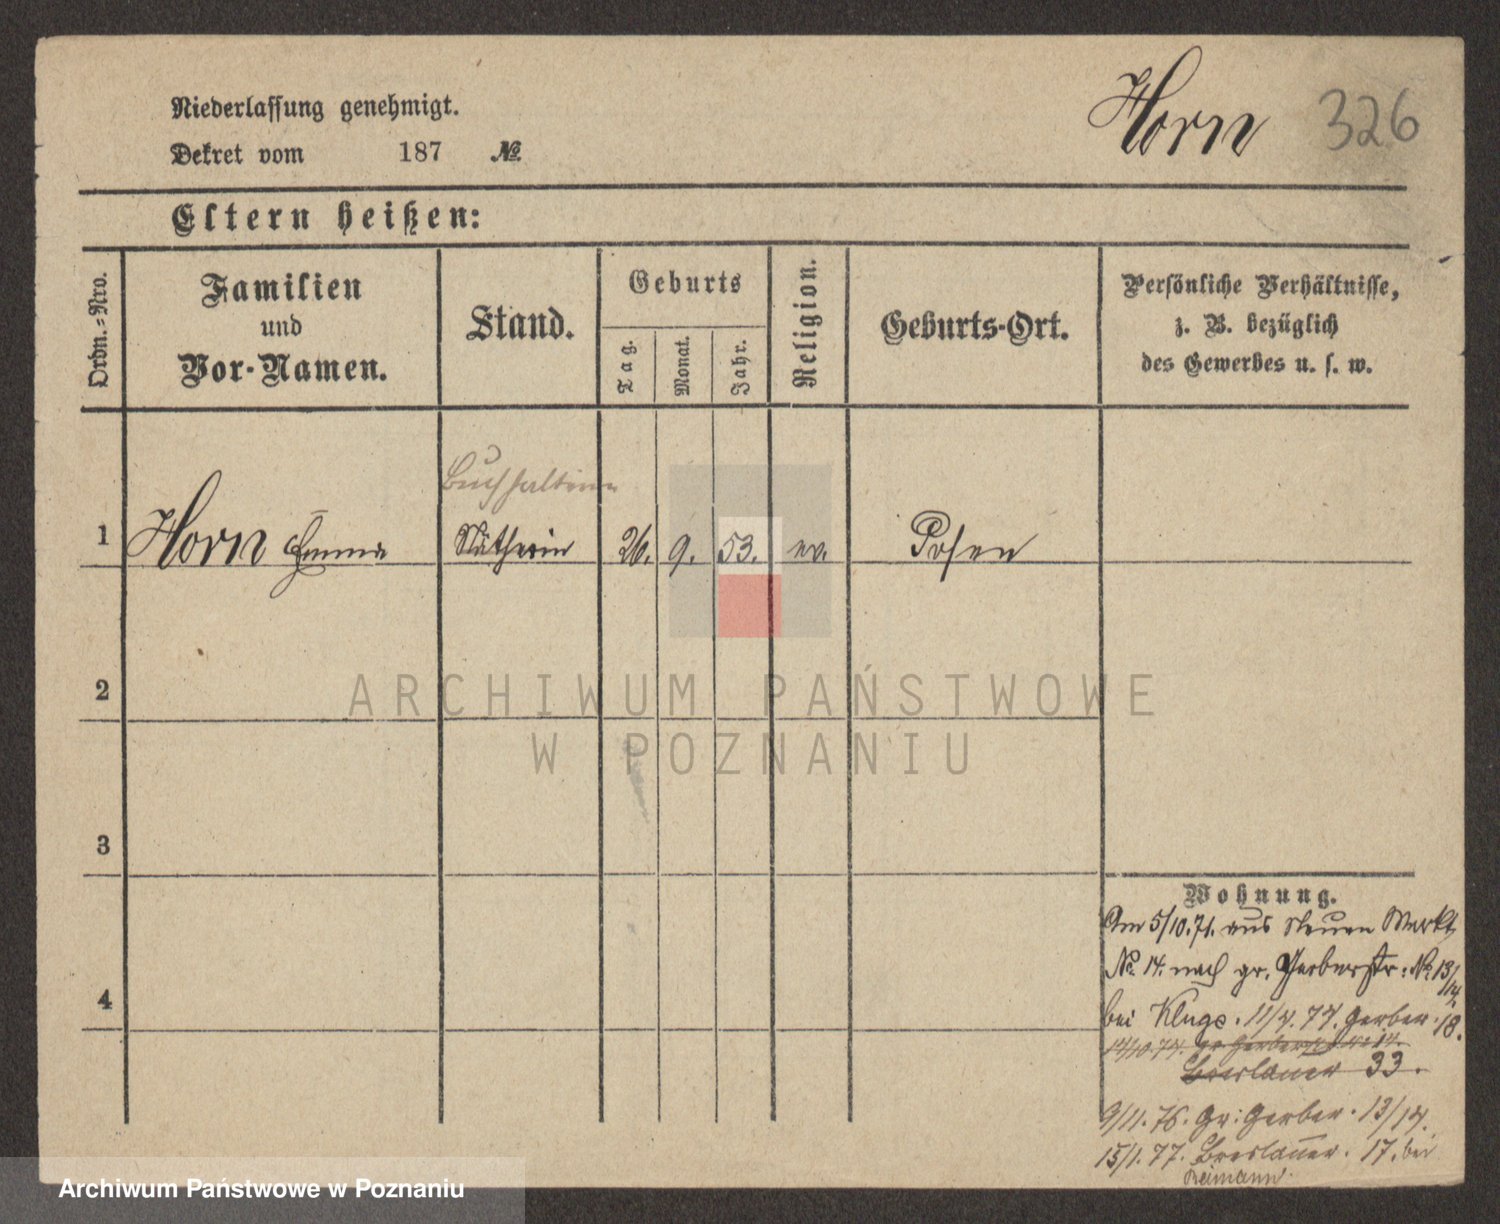 Horn 326
Niederlassung genehmigt.
Dekret vom 187 №
Eltern heißen:
Ordn.=Nro.
Familien
und
Vor-Namen.
Stand.
Geburts
Tag.
Monat.
Jahr.
Religion.
Geburts-Ort.
Persönliche Verhältnisse,
z. B. bezüglich
des Gewerbes u. s. w.
Buchhalterin
1 Horn Emma Nätherin 26. 9. 53. ev. Posen
2
3
4
Wohnung.
Am 5/10.71. aus Neuen Markt
№ 14. nach gr. Gerberstr: № 13/14.
bei Kluge. 11/4. 74. Gerber. 18.
14/10.74. gr Gerberstr № 14.
Breslauer 33.
9/11. 76. Gr: Gerber. 13/14.
15/1. 77. Breslauer. 17. bei
Reimann.
ARCHIWUM PAŃSTWOWE
W POZNANIU
Archiwum Państwowe w Poznaniu